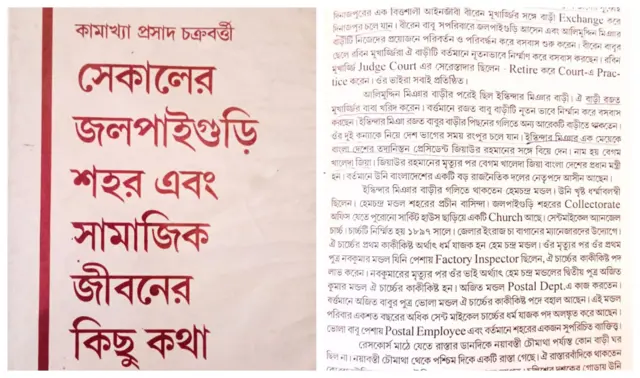 কামাখ্যা প্রসাদ চক্রবর্ত্তী
সেকালের
জলপাইগুড়ি
শহর এবং
সামাজিক
জীবনের
কিছু কথা
দিনাজপুরের এক বিত্তশালী আইনজীবী বীরেন মুখার্জির সঙ্গে বাড়ী Exchange করে
দিনাজপুর চলে যান। বীরেন বাবু সপরিবারে জলপাইগুড়ি আসেন এবং আলিমুদ্দিন মিঞার
বাড়ীটি নিজেদের প্রয়োজনে পরিবর্তন ও পরিবর্দ্ধন করে বসবাস শুরু করেন। বীরেন বাবুর
ছেলে রবিন মুখার্জিরা ঐ বাড়ীটি বর্তমানে নূতনভাবে নির্ম্মাণ করে বসবাস করছেন। রবিন
মুখার্জ্জি Judge Court এর সেরেস্তাদার ছিলেন - Retire করে Court-এ Prac-
tice করেন। ওঁর ভাইরা সবাই প্রতিষ্ঠিত।
আলিমুদ্দিন মিঞার বাড়ীর পরেই ছিল ইস্কান্দর মিঞার বাড়ী। ঐ বাড়ী রজত
মুখার্জির বাবা খরিদ করেন। বর্ত্তমানে রজত বাবু বাড়ীটি নূতন ভাবে নির্ম্মান করে বসবাস
করছেন। ইস্কিন্দার মিঞা রজত বাবুর বাড়ীর পিছনের গলিতে অন্য আরেকটী বাড়ীতে থাকতেন।
ওঁর দুই কন্যাকে নিয়ে দেশ ভাগের সময় রংপুর চলে যান। ইস্কিন্দার মিঞার এক মেয়েকে
বাংলা দেশের তদানিন্তন প্রেসিডেন্ট জিয়াউর রহমানের সঙ্গে বিয়ে দেন। নাম হয় বেগম
খালেদা জিয়া। জিয়াউর রহমানের মৃত্যুর পর বেগম খালেদা জিয়া বাংলা দেশের প্রধান মন্ত্রী
হন। বর্তমানে উনি বাংলাদেশের একটি বড় রাজনৈতিক দলের নেতৃপদে আসীন আছেন।
ইস্কিন্দার মিঞার বাড়ীর গলিতে থাকতেন হেমচন্দ্র মন্ডল। উনি খৃষ্ট ধর্ম্মাবলম্বী
ছিলেন। হেমচন্দ্র মন্ডল শহরের প্রাচীন বাসিন্দা। জলপাইগুড়ি শহরের Collectorate
অফিস যেতে পুরোনো সার্কিট হাউস ছাড়িয়ে একটি Church আছে। সেন্টমাইকেল অ্যানজেল
চার্চ্চ। চার্চটি নির্ম্মিত হয় ১৮৯৭ সালে। জেলার ইংরাজ চা বাগানের ম্যানেজারদের উদ্যোগে।
ঐ চার্চ্চের প্রথম কার্কীকিষ্ট অর্থাৎ ধর্ম্ম যাজক হন হেম চন্দ্র মন্ডল। ওঁর মৃত্যুর পর ওঁর প্রথম
পুত্র নবকুমার মন্ডল যিনি পেশায় Factory Inspector ছিলেন, ঐ চার্চ্চের কার্কীকিষ্ট পদ
লাভ করেন। নবকুমারের মৃত্যুর পর ওঁর ভাই অর্থ্যাৎ হেম চন্দ্র মন্ডলের দ্বিতীয় পুত্র অজিত
কুমার মন্ডল ঐ চার্চ্চের কার্কীকিষ্ট হন। অজিত মন্ডল Postal Dept. এ কাজ করতেন।
বর্ত্তমানে অজিত বাবুর পুত্র ভোলা মন্ডল ঐ চার্চ্চের কার্কীকিষ্ট পদে বহাল আছেন। এই মন্ডল
পরিবার একশত বছরের অধিক সেন্ট মাইকেল চার্চ্চের ধর্ম্ম যাজক পদ অলঙ্কৃত করে আছেন।
ভোলা বাবু পেশায় Postal Employee এবং বর্তমানে শহরের একজন সুপরিচিত ব্যক্তিত্ব।
রেসকোর্স মাঠে যেতে রাস্তার ডানদিকে নয়াবস্তী চৌমাথা পর্য্যন্ত কোন বাড়ী ঘর
ছিল না। নয়াবস্তী চৌমাথা থেকে পশ্চিম দিকে একটি রাস্তা গেছে। ঐ রাস্তারবাঁদিকে থাকতেন